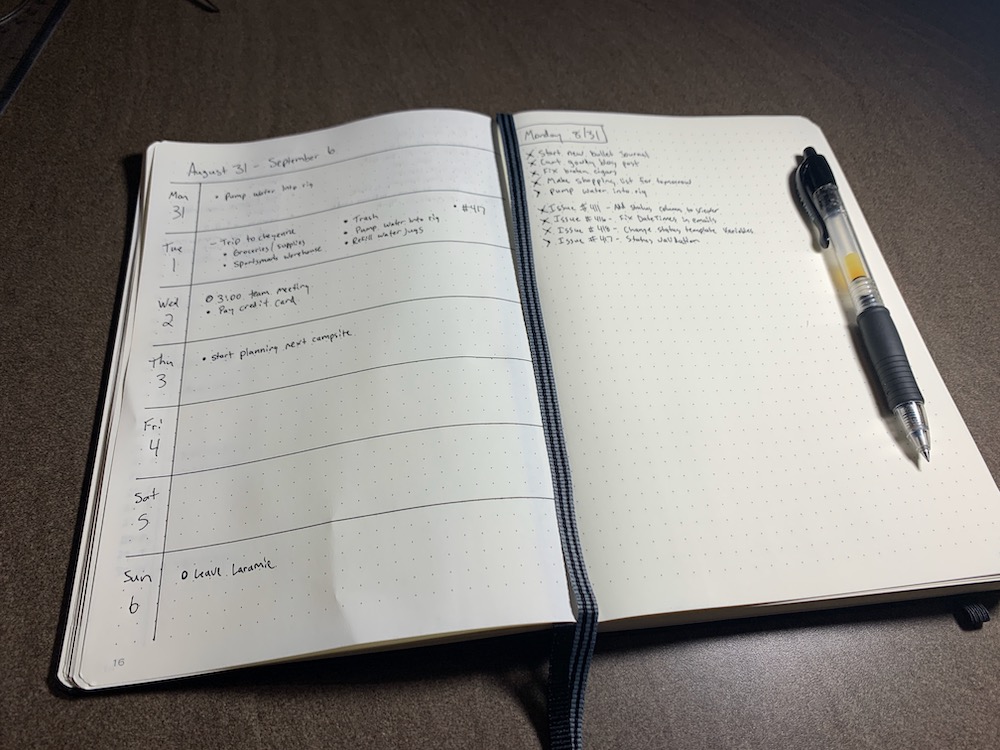 August 31 - September 6
Mon
31
• Pump water into rig
Tue
1
- Trip to cheyenne
• Groceries/supplies
• Sportsmans warehouse
• Trash
• Pump water into rig
• Refill water jugs
• #417
Wed
2
O 3:00 team meeting
• Pay credit card
Thu
3
• start planning next campsite
Fri
4
Sat
5
Sun
6
O Leave Laramie
16
Monday 8/31
X Start new bullet journal
X Cont. goofky blog post
X Fix broken cigars
X Make shopping list for tomorrow
> Pump water into rig
X Issue #411 - Add status column to
X Issue #416 - Fix DateTimes in emails
X Issue #418 - Change status template variables
> Issue #417 - Status validation